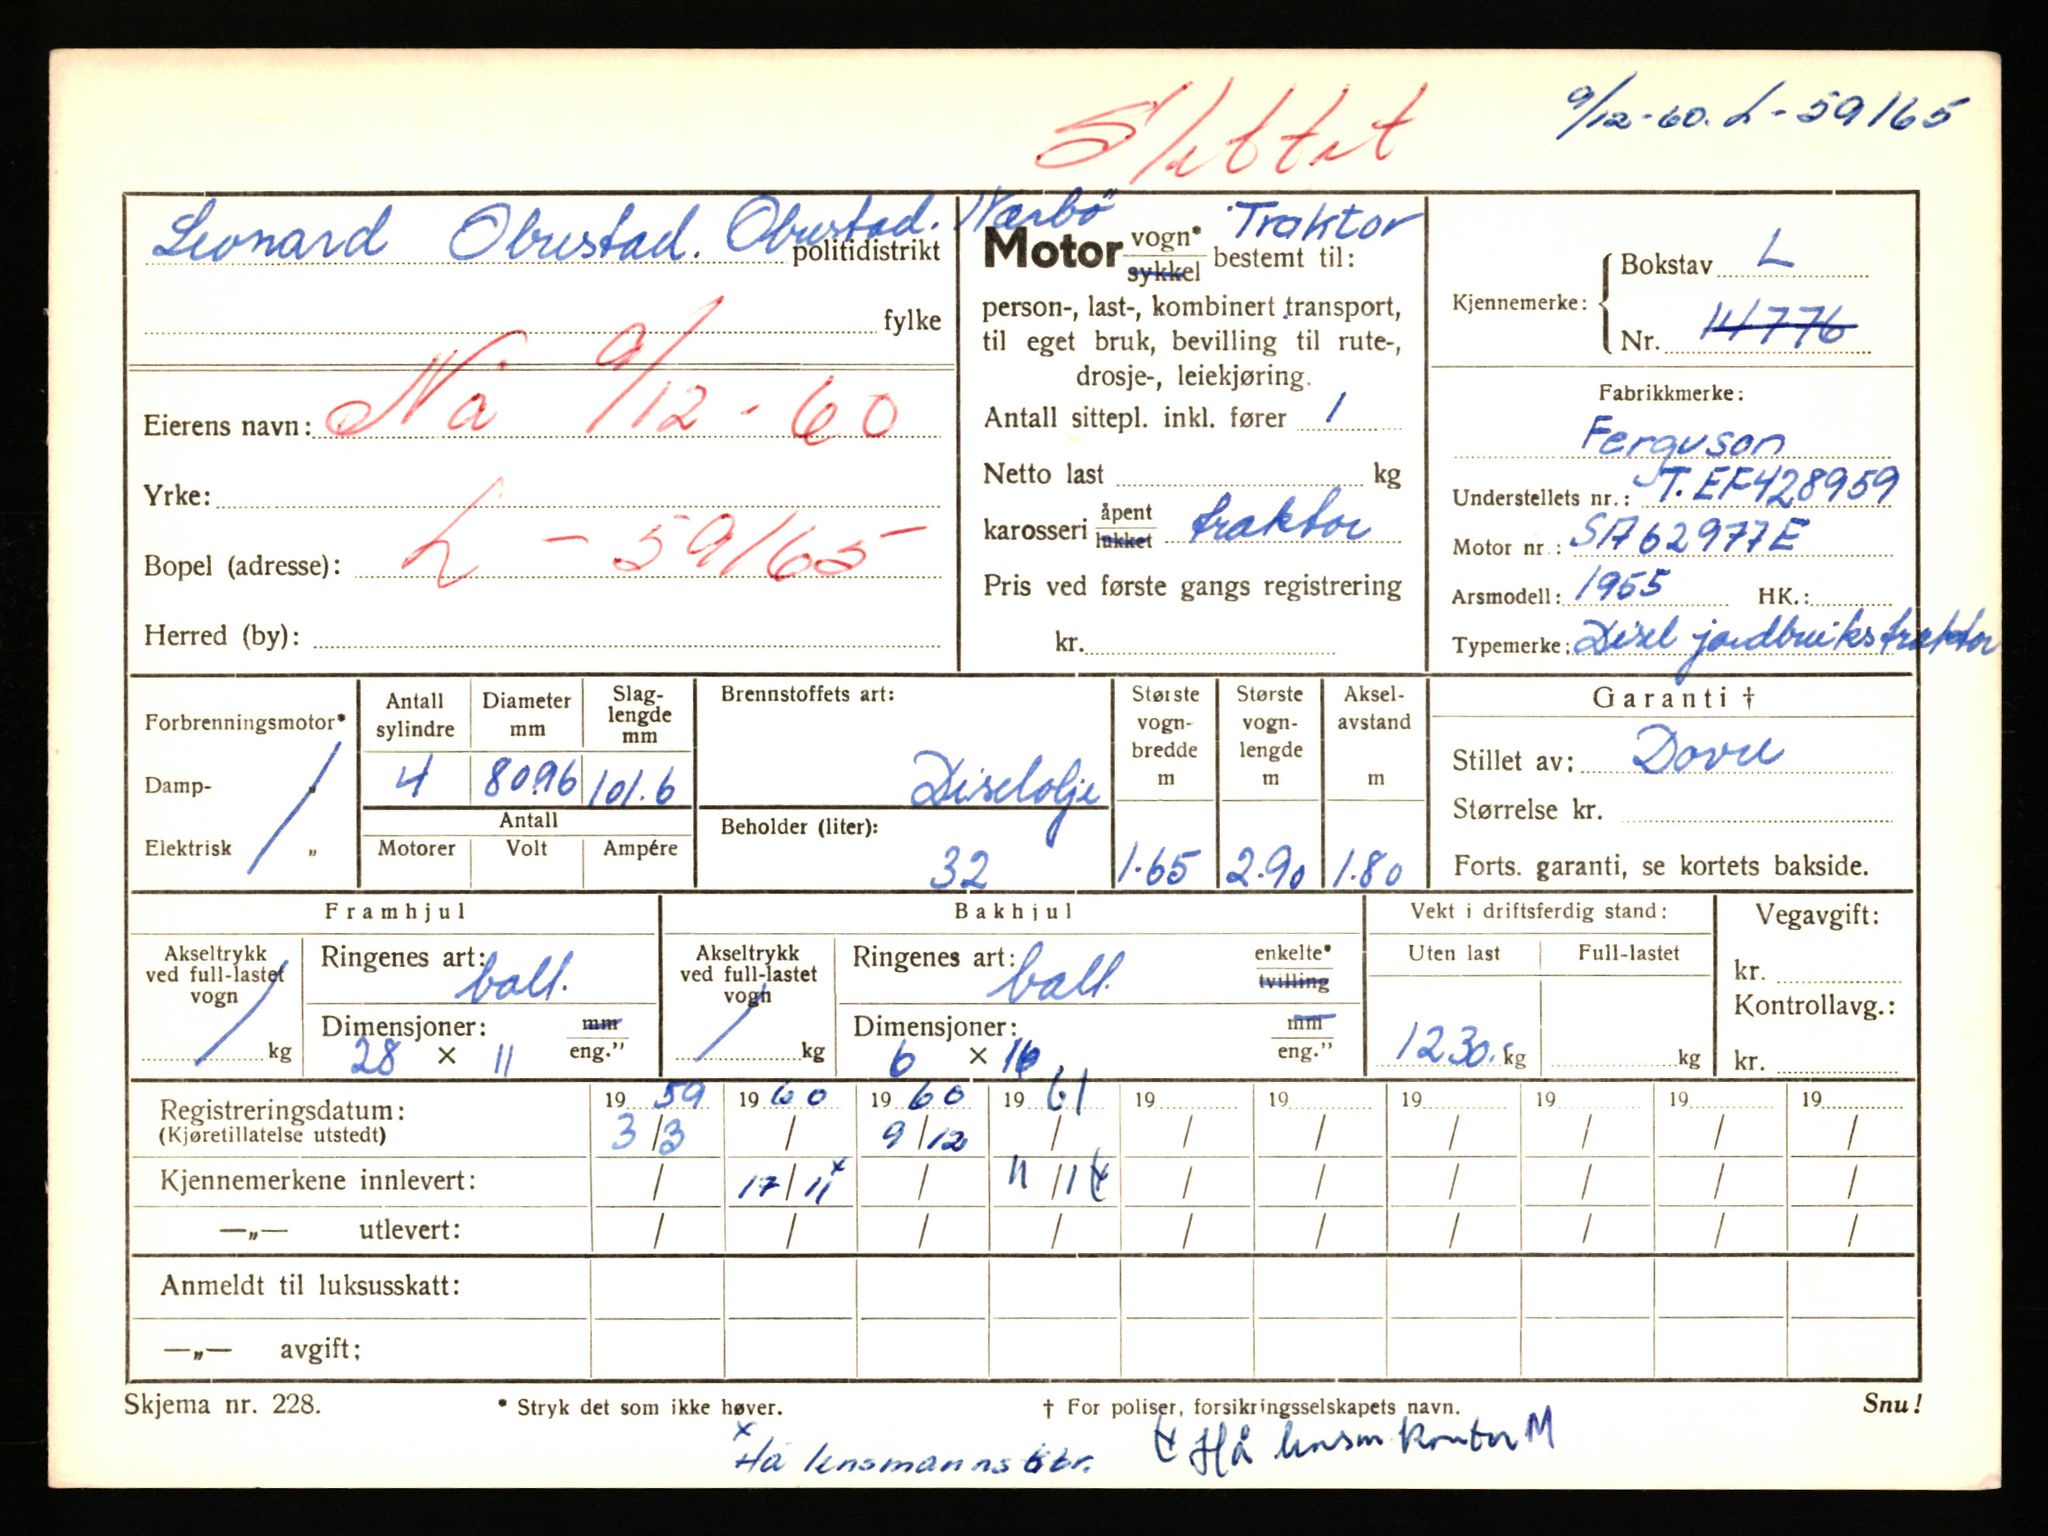 Slettet
9/12-60. L-59165
Leonard Obrestad. Obrestad. Nærbö
politidistrikt
fylke
Nå 9/12-60
Eierens navn:
Yrke:
L-59165
Bopel (adresse):
Herred (by):
Traktor
Motor vogn* sykkel bestemt til:
person-, last-, kombinert transport,
til eget bruk, bevilling til rute-,
drosje-, leiekjøring.
Antall sittepl. inkl. fører 1
Netto last kg
karosseri åpent lukket traktor
Pris ved første gangs registrering
kr.
Kjennemerke: Bokstav L
Nr. 14776
Fabrikkmerke:
Ferguson
Understellets nr.: T.EF428959
Motor nr.: SA62977E
Arsmodell: 1955 HK.:
Typemerke: Disel jordbrukstraktor
Forbrenningsmotor*
Damp- „
Elektrisk „
Antall sylindre 4
Diameter mm 80.96
Slaglengde mm 101.6
Antall
Motorer Volt Ampére
Brennstoffets art:
Diselolje
Beholder (liter):
32
Største vognbredde m 1.65
Største vognlengde m 2.90
Akselavstand m 1.80
Garanti †
Stillet av: Dovre
Størrelse kr.
Forts. garanti, se kortets bakside.
Framhjul
Akseltrykk ved full-lastet vogn kg
Ringenes art: ball.
Dimensjoner: mm eng.”
28 × 11
Bakhjul
Akseltrykk ved full-lastet vogn kg
Ringenes art: ball. enkelte* tvilling
Dimensjoner: mm eng.”
6 × 16
Vekt i driftsferdig stand:
Uten last Full-lastet
1230. kg kg
Vegavgift:
kr.
Kontrollavg.:
kr.
19 59 19 60 19 60 19 61 19 19 19 19 19 19
Registreringsdatum: 3/3 / 9/12 / / / / / / /
(Kjøretillatelse utstedt)
Kjennemerkene innlevert: / 17/11 x / 11/1 / / / / / /
—„— utlevert: / / / / / / / / / /
Anmeldt til luksusskatt:
—„— avgift:
Skjema nr. 228.
* Stryk det som ikke høver.
† For poliser, forsikringsselskapets navn.
Snu!
x Hå lensmannsktr.
Hå lensm kontor M